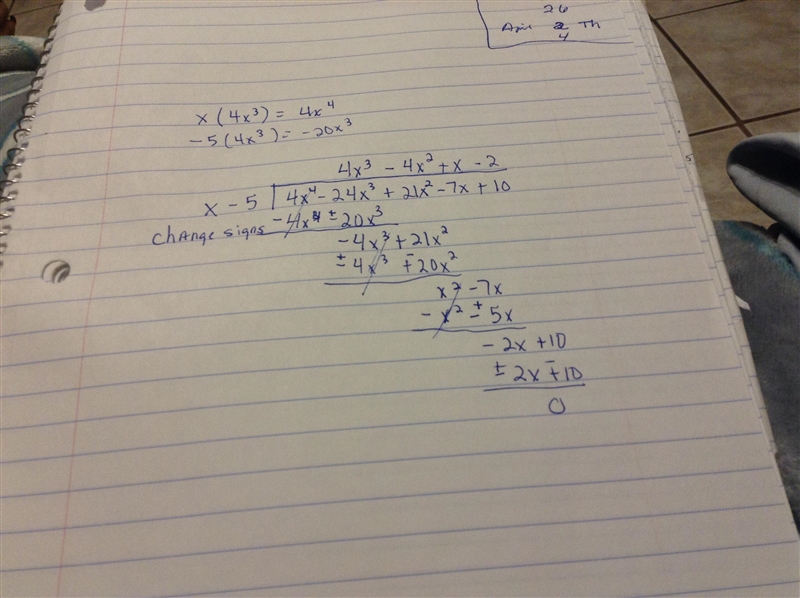 26
2 Th
4
x (4x³) = 4x⁴
-5 (4x³) = -20x³
4x³ - 4x² + x - 2
x - 5 | 4x⁴ - 24x³ + 21x² - 7x + 10
change signs - 4x⁴ ± 20x³
- 4x³ + 21x²
± 4x³ ∓ 20x²
x² - 7x
- x² ± 5x
- 2x + 10
± 2x ∓ 10
0